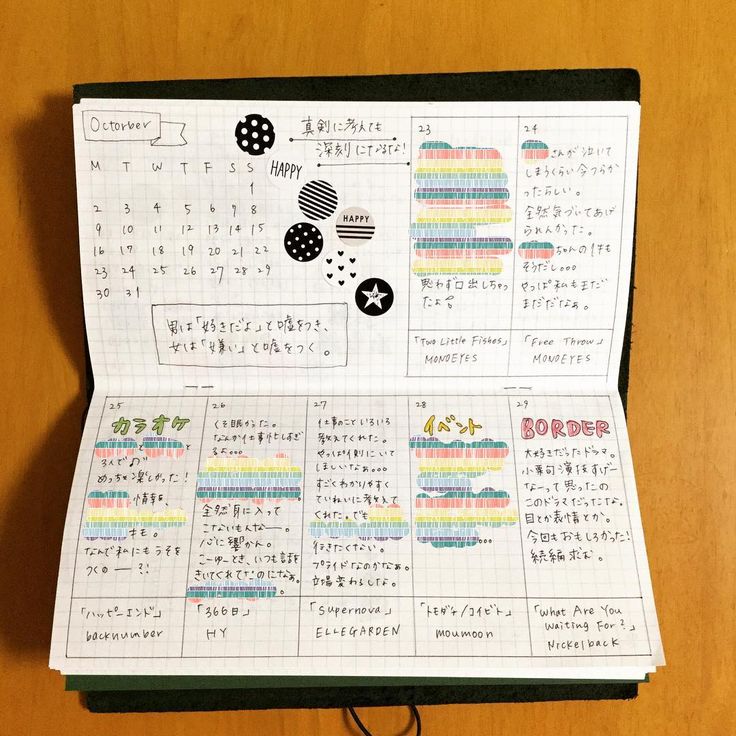 Octorber
M T W T F S S
1
2 3 4 5 6 7 8
9 10 11 12 13 14 15
16 17 18 19 20 21 22
23 24 25 26 27 28 29
30 31
HAPPY
HAPPY
真剣に考えても
深刻になるな!
男は「好きだよ」と嘘をつき、
女は「嫌い」と嘘をつく。
23
思わず口出しちゃっ
たよ
「Two Little Fishes」
MONOEYES
24
さんが泣いて
しまうくらい今つらか
ったらしい。
全然気づいてあげ
られんかった。
ちゃんの件も
そうだし。。。
やっぱ私もまだ
まだだなぁ。
「Free Throw」
MONOEYES
25
カラオケ
と と
3人で♫
めっちゃ楽しかった!
情報を、
キモ。
なんで私にもうそを
つくのー?!
「ハッピーエンド」
backnumber
26
くそ眠かった。
なんか仕事
るち。。。
全然身に入って
こないもんなー。
心に響かん。
こーゆーとき、いつも話を
きいてくれてたのになぁ。
「366日」
HY
27
仕事のこといろいろ
教えてくれた。
やっぱ周りにいて
ほしいなぁ。。。
すごくわかりやすく
ていねいに考えて
くれた。でも
行きたくない。
プライドなのかなぁ。
立場変わるしな。
「Supernova」
ELLEGARDEN
28
イベント
。。。
「トモダチ/コイビト」
moumoon
29
BORDER
大好きだったドラマ。
小栗旬演技すげー
なーって思ったの
このドラマだったなぁ。
目とか表情とか。
今回もおもしろかった!
続編求む。
「What Are You
Waiting For?」
Nickelback